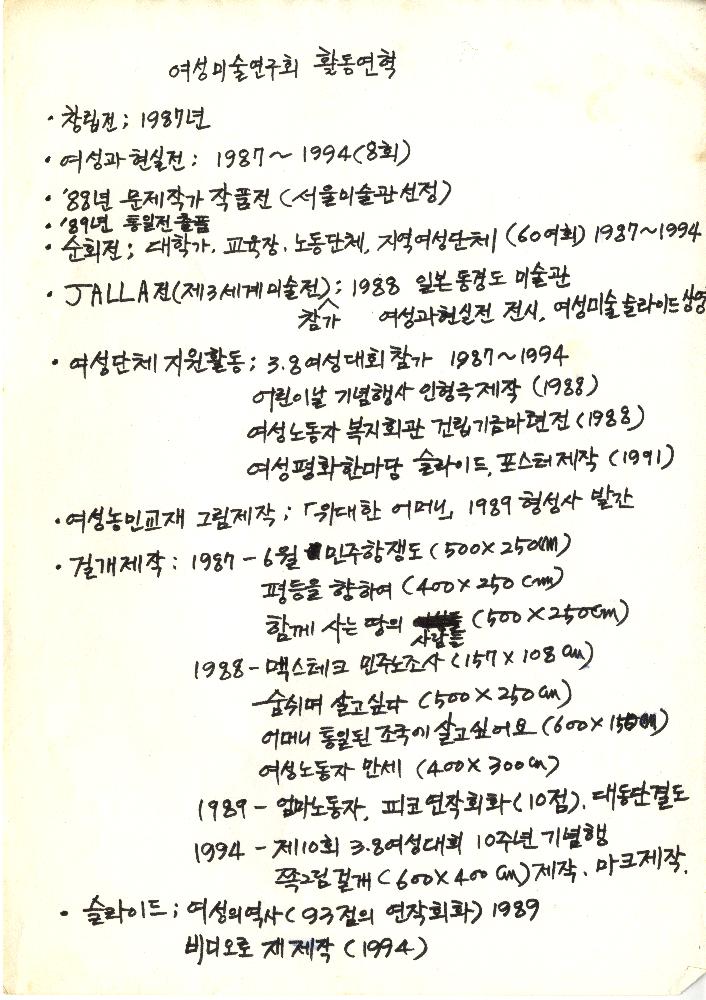 여성미술연구회 활동연혁
· 창립전; 1987년
· 여성과 현실전: 1987~1994(8회)
· '88년 문제작가 작품전 (서울미술관 선정)
· '89년 통일전 출품
· 순회전; 대학가, 교육장, 노동단체, 지역여성단체 (60여회) 1987~1994
· JALLA전(제3세계미술전); 1988 일본 동경도 미술관
참가 여성과현실전 전시, 여성미술 슬라이드 상영
· 여성단체 지원활동; 3.8여성대회 참가 1987~1994
어린이날 기념행사 인형극제작 (1988)
여성노동자 복지회관 건립기금마련전 (1988)
여성평화한마당 슬라이드, 포스터제작 (1991)
· 여성농민교재 그림제작; 「위대한 어머니」 1989 형성사 발간
· 걸개제작: 1987 - 6월 민주항쟁도 (500×250cm)
평등을 향하여 (400×250cm)
함께 사는 땅의 (500×250cm)
사람들
1988 - 맥스테크 민주노조사 (157×108cm)
숨쉬며 살고싶다 (500×250cm)
어머니 통일된 조국에 살고싶어요 (600×150cm)
여성노동자 만세 (400×300cm)
1989 - 엄마노동자, 피코 연작회화 (10점), 대동단결도
1994 - 제10회 3.8여성대회 10주년 기념행
쪽그림 걸개 (600×400cm) 제작. 마크제작.
· 슬라이드; 여성의역사 (93점의 연작회화) 1989
비디오로 재제작 (1994)